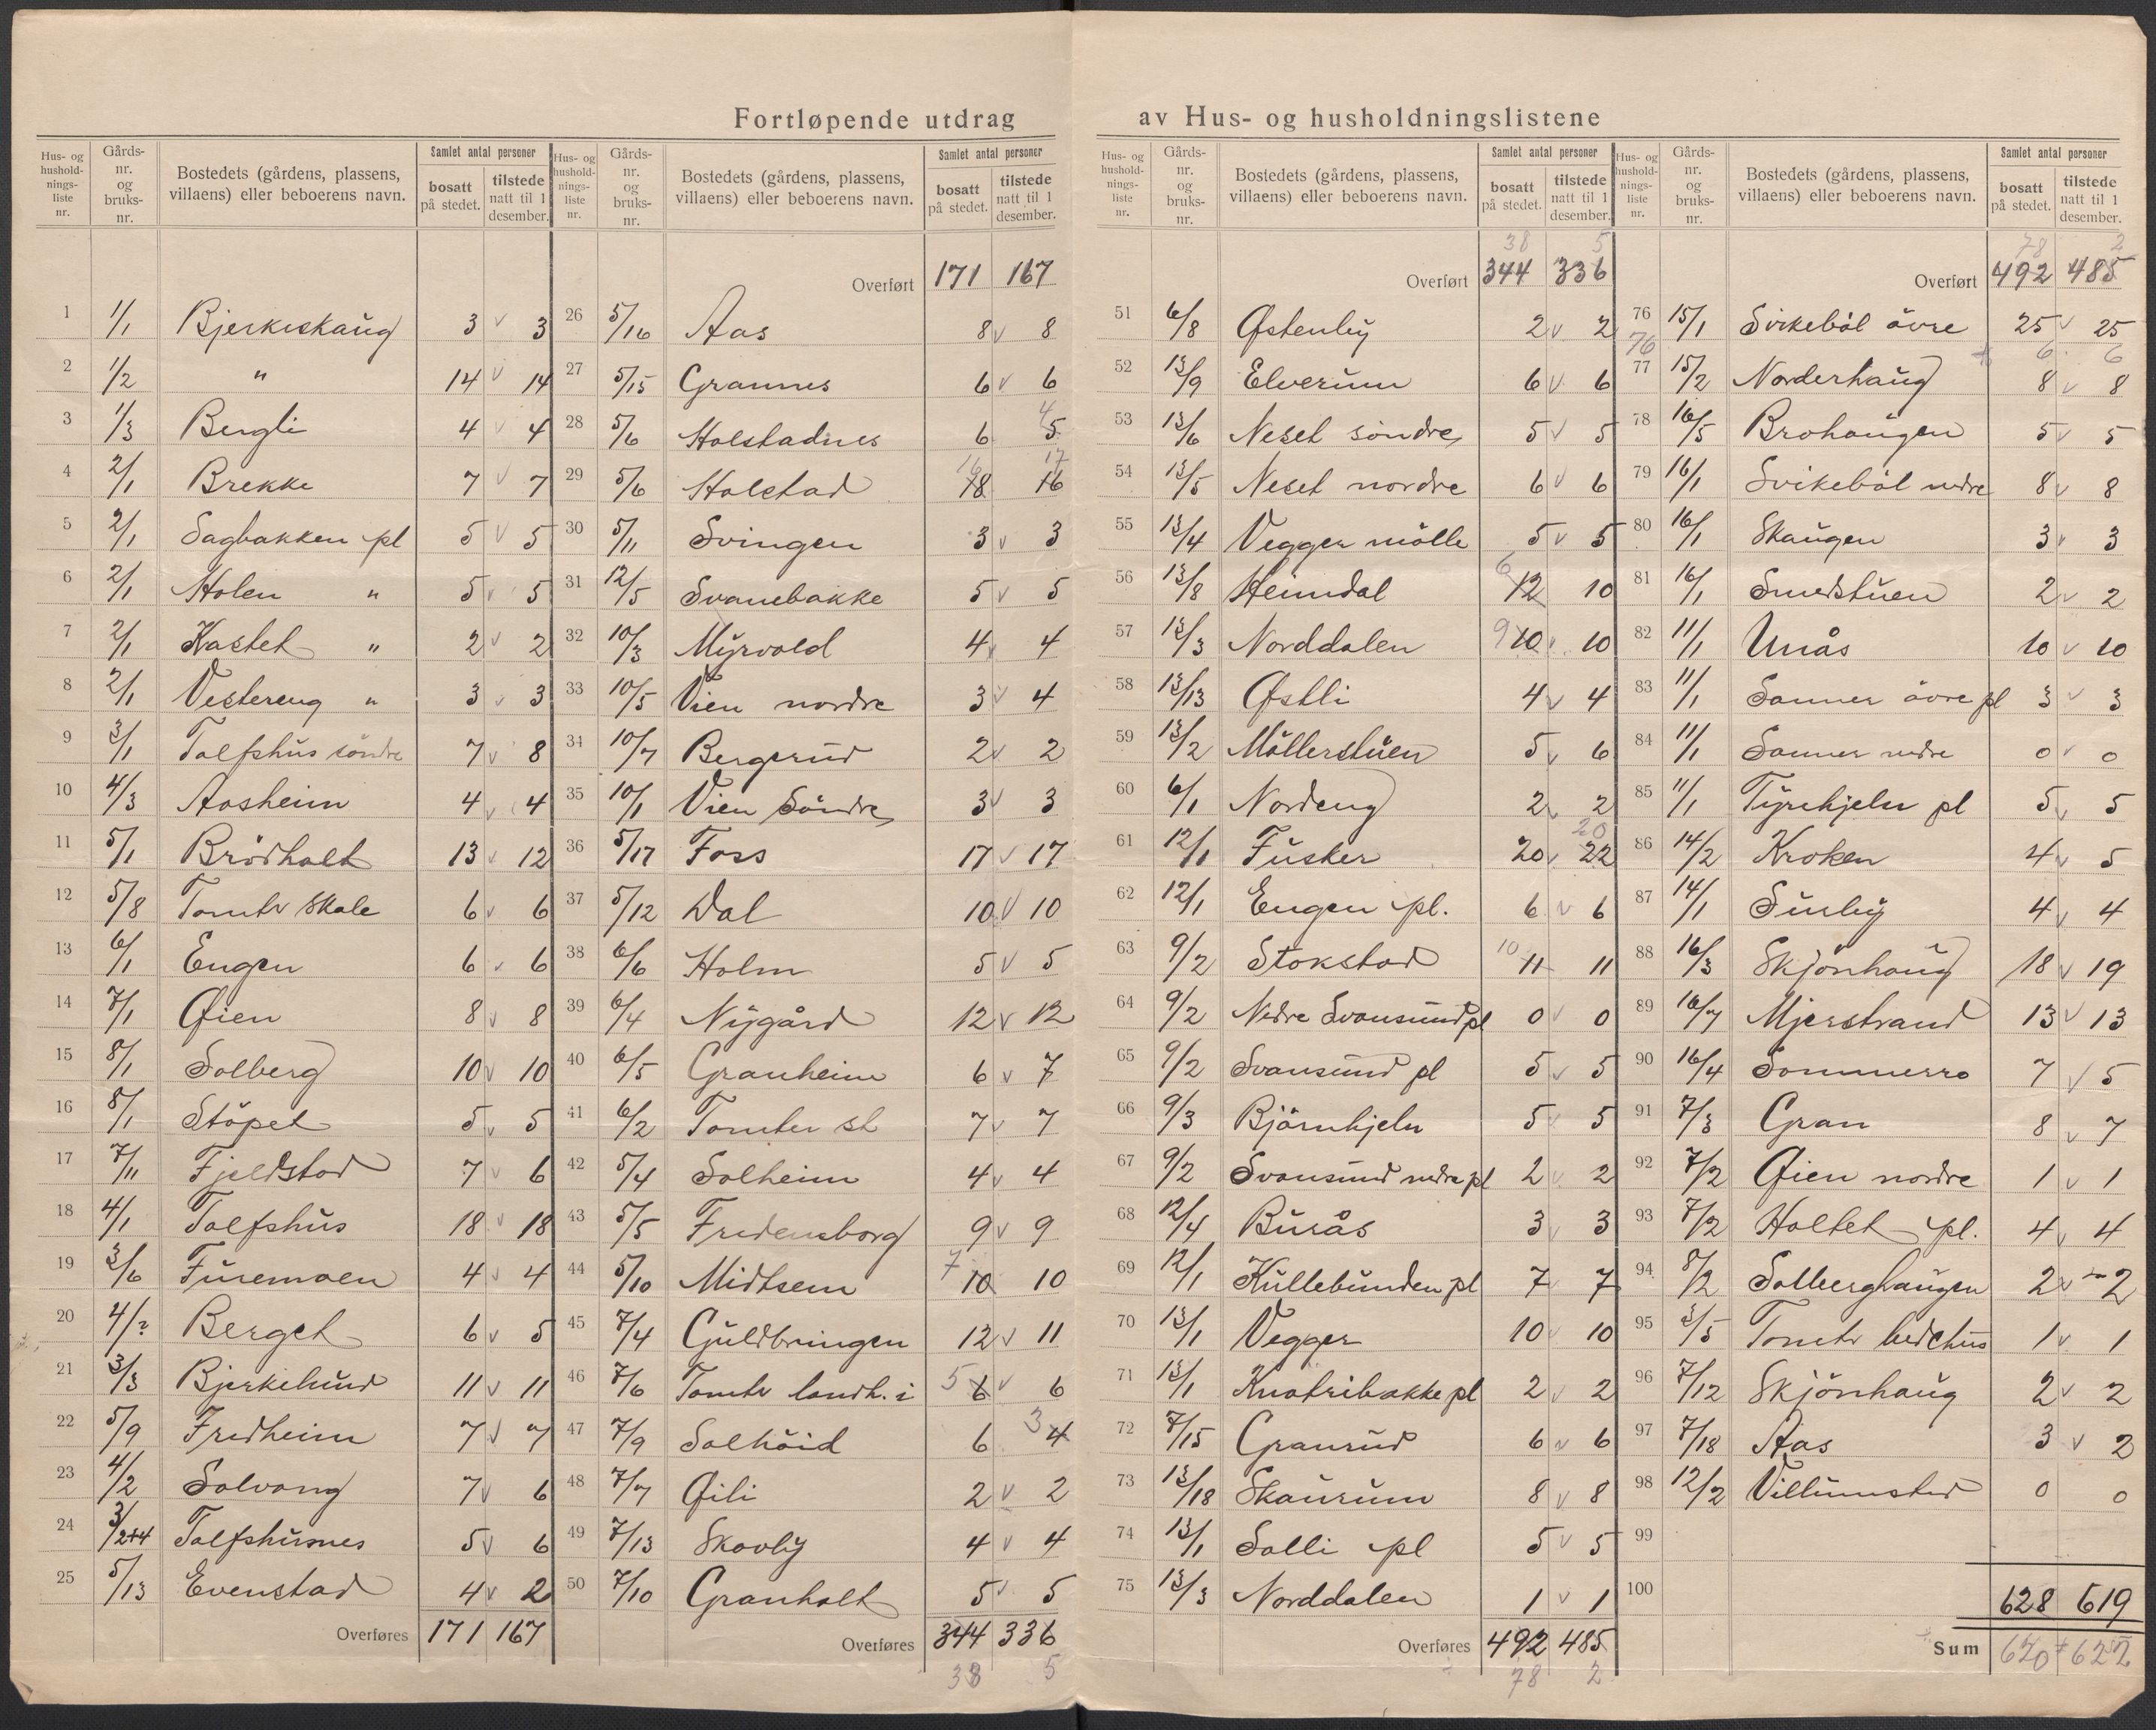 Fortløpende utdrag av Hus- og husholdningslistene
Hus- og hushold-nings-liste nr. | Gårds-nr. og bruks-nr. | Bostedets (gårdens, plassens, villaens) eller beboerens navn. | Samlet antal personer | bosatt på stedet. | tilstede natt til 1 desember.
1 1/1 Bjerkeskaug 3 v 3
2 1/2 " 14 v 14
3 1/3 Bergli 4 v 4
4 2/1 Brekke 7 v 7
5 2/1 Sagbakken pl 5 v 5
6 2/1 Holen " 5 v 5
7 2/1 Kastet " 2 v 2
8 2/1 Vestereng " 3 v 3
9 3/1 Tolfshus söndre 7 v 8
10 4/3 Aasheim 4 v 4
11 5/1 Brödholt 13 v 12
12 5/8 Tomter Skole 6 v 6
13 6/1 Engen 6 v 6
14 7/1 Øien 8 v 8
15 8/1 Solberg 10 v 10
16 8/1 Stöpet 5 v 5
17 7/11 Fjeldstad 7 v 6
18 4/1 Tolfshus 18 v 18
19 3/6 Furemoen 4 v 4
20 4/? Berget 6 v 5
21 3/3 Bjerkelund 11 v 11
22 5/9 Fredheim 7 v 7
23 4/2 Solvang 7 v 6
24 3/2+4 Tolfshusnes 5 v 6
25 5/13 Evenstad 4 v 2
Overføres 171 167
Hus- og hushold-nings-liste nr. | Gårds-nr. og bruks-nr. | Bostedets (gårdens, plassens, villaens) eller beboerens navn. | Samlet antal personer | bosatt på stedet. | tilstede natt til 1 desember.
Overført 171 167
26 5/16 Aas 8 v 8
27 5/15 Grannes 6 v 6
28 5/6 Holstadnes 6 5 4
29 5/6 Holstad 18 16 16 17
30 5/11 Svingen 3 v 3
31 12/5 Svanebakke 5 v 5
32 10/3 Myrvold 4 v 4
33 10/5 Vien nordre 3 v 4
34 10/7 Bergerud 2 v 2
35 10/1 Vien Söndre 3 v 3
36 5/17 Foss 17 v 17
37 5/12 Dal 10 v 10
38 6/6 Holm 5 v 5
39 6/4 Nygård 12 v 12
40 6/5 Granheim 6 v 7
41 6/2 Tomter st 7 v 7
42 5/4 Solheim 4 v 4
43 5/5 Fredensborg 9 v 9
44 5/10 Midtsem 7 10 10
45 7/4 Guldbringen 12 v 11
46 7/6 Tomter landh. i 5 6 v 6
47 7/9 Solhöid 6 3 4
48 7/7 Øili 2 v 2
49 7/13 Skovly 4 v 4
50 7/10 Granholt 5 v 5
Overføres 344 336
38 5
Hus- og hushold-nings-liste nr. | Gårds-nr. og bruks-nr. | Bostedets (gårdens, plassens, villaens) eller beboerens navn. | Samlet antal personer | bosatt på stedet. | tilstede natt til 1 desember.
38 5
Overført 344 336
51 6/8 Østenby 2 v 2
52 13/9 Elverum 6 v 6
53 13/6 Neset söndre 5 v 5
54 13/5 Neset nordre 6 v 6
55 13/4 Vegger mölle 5 v 5
56 13/8 Heimdal 6 12 10
57 13/3 Norddalen 9 10 v 10
58 13/13 Østli 4 v 4
59 13/2 Möllerstuen 5 v 6
60 6/1 Nordeng 2 v 2
61 12/1 Fusker 20 v 22 20
62 12/1 Engen pl. 6 v 6
63 9/2 Stokstad 10 11 11
64 9/2 Nedre Svansund pl 0 v 0
65 9/2 Svansund pl 5 v 5
66 9/3 Björnhjeln 5 v 5
67 9/2 Svansund nedre pl 2 v 2
68 12/4 Burås 3 v 3
69 12/1 Kullebunden pl 7 v 7
70 13/1 Vegger 10 v 10
71 13/1 Knatribakke pl 2 v 2
72 7/15 Granrud 6 v 6
73 13/18 Skaurum 8 v 8
74 13/1 Solli pl 5 v 5
75 13/3 Norddalen 1 v 1
Overføres 492 485
78 2
Hus- og hushold-nings-liste nr. | Gårds-nr. og bruks-nr. | Bostedets (gårdens, plassens, villaens) eller beboerens navn. | Samlet antal personer | bosatt på stedet. | tilstede natt til 1 desember.
78 2
Overført 492 485
76 15/1 Svikeböl övre 25 v 25
76 6 6
77 15/2 Norderhaug 8 v 8
78 16/5 Brohaugen 5 v 5
79 16/1 Svikeböl nedre 8 v 8
80 16/1 Skaugen 3 v 3
81 16/1 Smedstuen 2 v 2
82 11/1 Unås 10 v 10
83 11/1 Sanner övre pl 3 v 3
84 11/1 Sanner nedre 0 v 0
85 11/1 Tyrehjeln pl 5 v 5
86 14/2 Kroken 4 v 5
87 14/1 Suuby 4 v 4
88 16/3 Skjönhaug 18 v 19
89 16/7 Mjerstrand 13 v 13
90 16/4 Sommerro 7 v 5
91 7/3 Gran 8 v 7
92 7/2 Øien nordre 1 v 1
93 7/2 Holtet pl. 4 v 4
94 8/2 Solberghaugen 2 v 2
95 3/5 Tomter bedehus 1 v 1
96 7/12 Skjönhaug 2 v 2
97 7/18 Aas 3 v 2
98 12/2 Villumsted 0 0
99
100 628 619
Sum 620 622